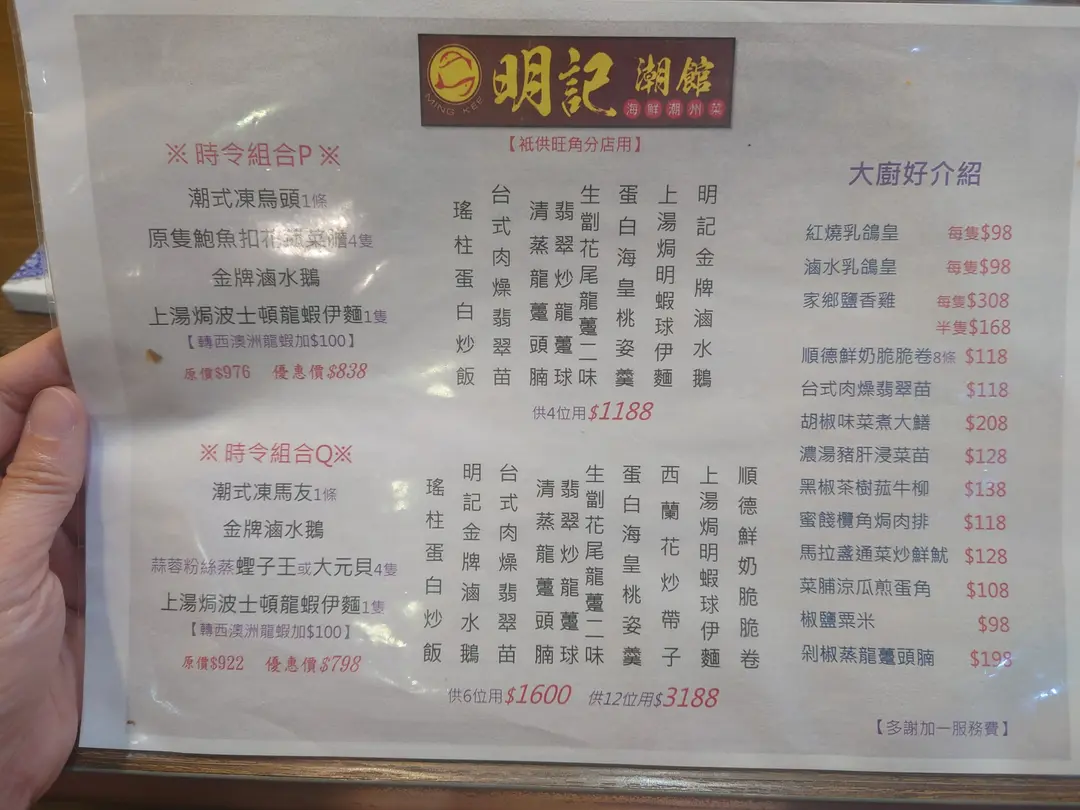 明記 潮館
MING KEE
海鮮潮州菜
【祇供旺角分店用】
※ 時令組合P ※
潮式凍烏頭1條
原隻鮑魚扣花菜膽4隻
金牌滷水鵝
上湯焗波士頓龍蝦伊麵1隻
【轉西澳洲龍蝦加$100】
原價$976 優惠價$838
※ 時令組合Q※
潮式凍馬友1條
金牌滷水鵝
蒜蓉粉絲蒸蟶子王或大元貝4隻
上湯焗波士頓龍蝦伊麵1隻
【轉西澳洲龍蝦加$100】
原價$922 優惠價$798
明記金牌滷水鵝
上湯焗明蝦球伊麵
蛋白海皇桃姿羹
生劏花尾龍躉二味
翡翠炒龍躉球
清蒸龍躉頭腩
台式肉燥翡翠苗
瑤柱蛋白炒飯
供4位用$1188
順德鮮奶脆脆卷
上湯焗明蝦球伊麵
西蘭花炒帶子
蛋白海皇桃姿羹
生劏花尾龍躉二味
翡翠炒龍躉球
清蒸龍躉頭腩
台式肉燥翡翠苗
明記金牌滷水鵝
瑤柱蛋白炒飯
供6位用$1600 供12位用$3188
大廚好介紹
紅燒乳鴿皇 每隻$98
滷水乳鴿皇 每隻$98
家鄉鹽香雞 每隻$308
半隻$168
順德鮮奶脆脆卷8條 $118
台式肉燥翡翠苗 $118
胡椒味菜煮大鱔 $208
濃湯豬肝浸菜苗 $128
黑椒茶樹菰牛柳 $138
蜜餞欖角焗肉排 $118
馬拉盞通菜炒鮮魷 $128
菜脯涼瓜煎蛋角 $108
椒鹽粟米 $98
剁椒蒸龍躉頭腩 $198
【多謝加一服務費】